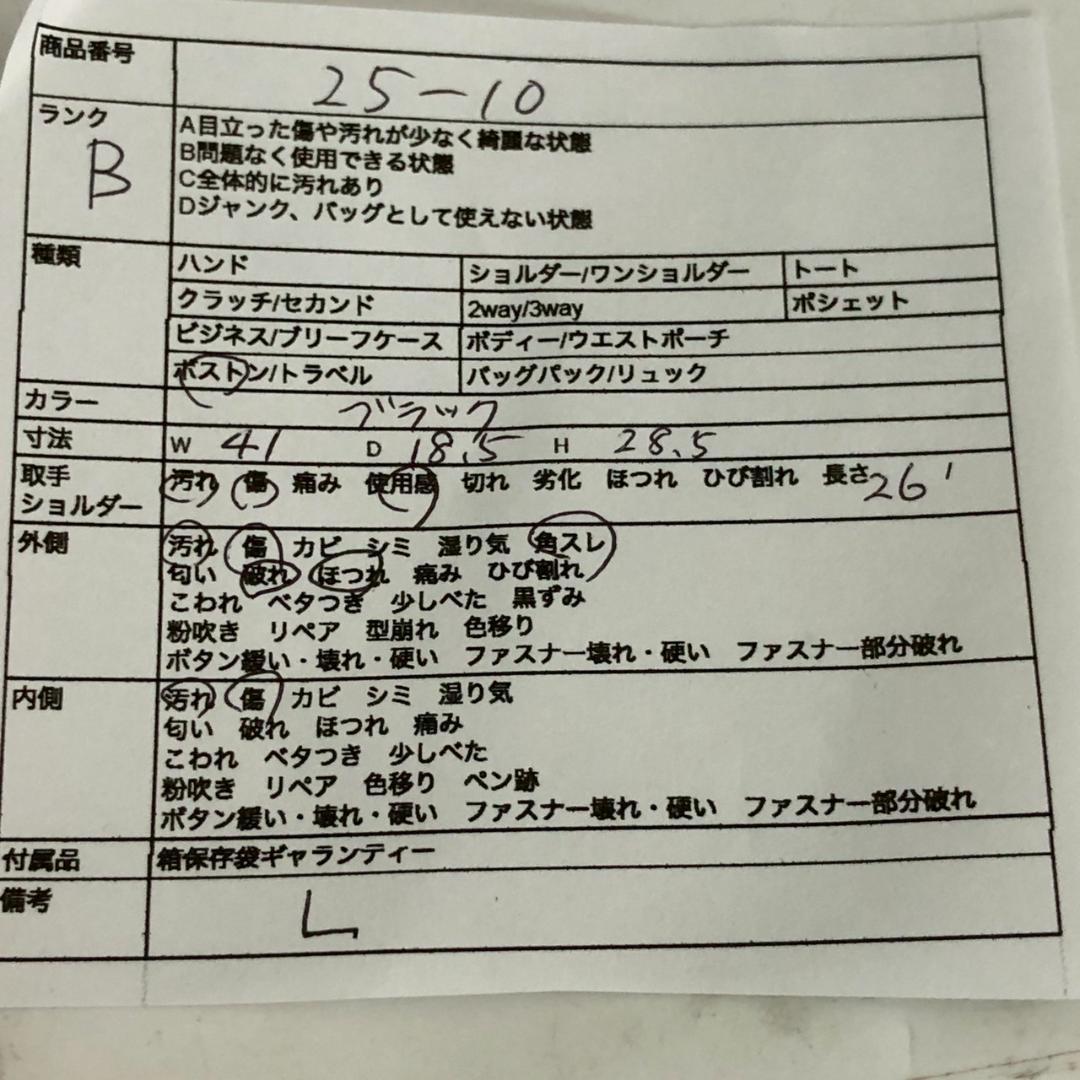 商品番号 25-10
ランク B
A目立った傷や汚れが少なく綺麗な状態
B問題なく使用できる状態
C全体的に汚れあり
Dジャンク、バッグとして使えない状態
種類 ハンド ショルダー/ワンショルダー トート
クラッチ/セカンド 2way/3way ポシェット
ビジネス/ブリーフケース ボディー/ウエストポーチ
ボストン/トラベル バッグパック/リュック
カラー ブラック
寸法 W 41 D 18.5 H 28.5
取手 汚れ 傷 痛み 使用感 切れ 劣化 ほつれ ひび割れ 長さ 26
ショルダー
外側 汚れ 傷 カビ シミ 湿り気 角スレ
匂い 破れ ほつれ 痛み ひび割れ
こわれ ベタつき 少しべた 黒ずみ
粉吹き リペア 型崩れ 色移り
ボタン緩い・壊れ・硬い ファスナー壊れ・硬い ファスナー部分破れ
内側 汚れ 傷 カビ シミ 湿り気
匂い 破れ ほつれ 痛み
こわれ ベタつき 少しべた
粉吹き リペア 色移り ペン跡
ボタン緩い・壊れ・硬い ファスナー壊れ・硬い ファスナー部分破れ
付属品 箱保存袋ギャランティー
備考 L